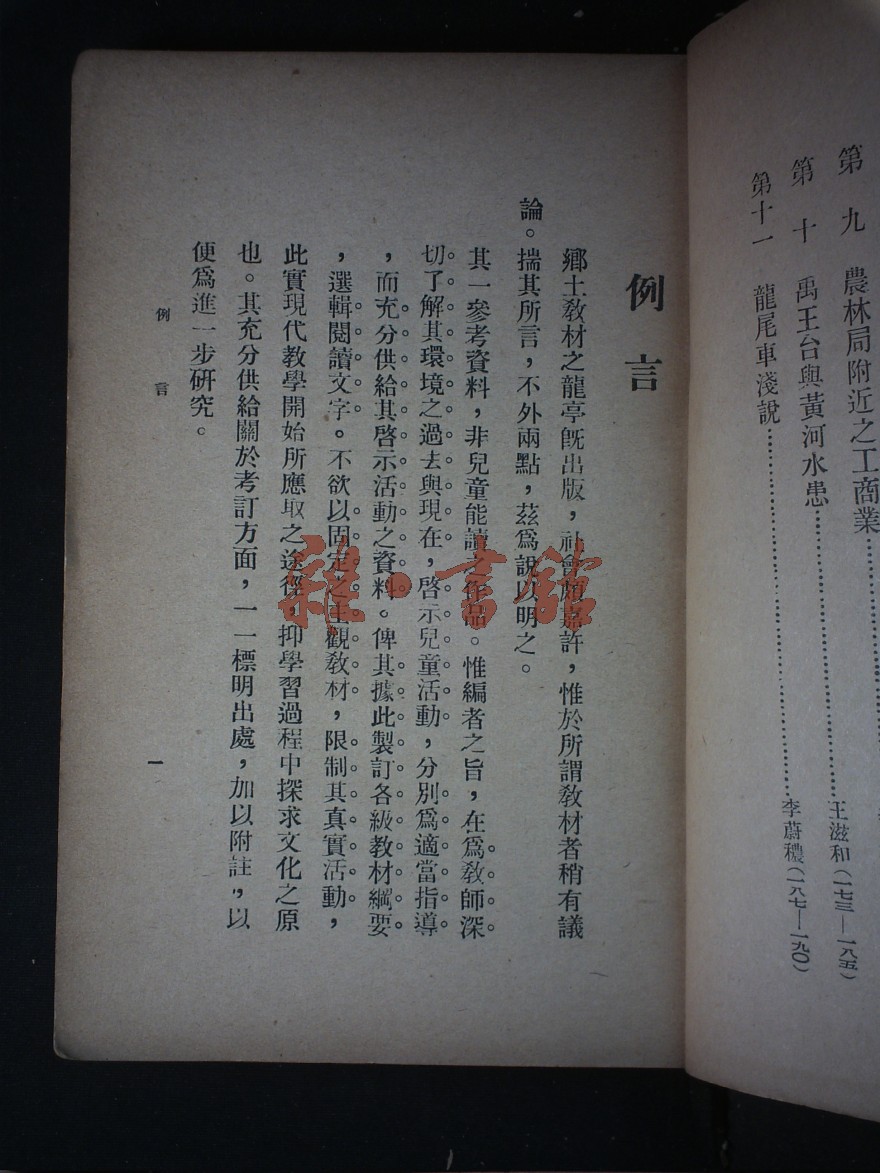 第九 農林局附近之工商業
第十 禹王台與黃河水患 王滋和（一七三—一八五）
第十一 龍尾車淺說 李蔚穠（一八七—一九〇）
例言
鄉土教材之龍亭既出版，社會頗嘉許，惟於所謂教材者稍有議
論。揣其所言，不外兩點，茲爲說以明之。
其一參考資料，非兒童能讀之作品。惟編者之旨，在爲教師深
切了解其環境之過去與現在，啓示兒童活動，分別爲適當指導
，而充分供給其啓示活動之資料。俾其據此製訂各級教材綱要
，選輯閱讀文字。不欲以固定之主觀教材，限制其真實活動，
此實現代教學開始所應取之途徑，抑學習過程中探求文化之原
也。其充分供給關於考訂方面，一一標明出處，加以附註，以
便爲進一步研究。
例言
一
雜·書館